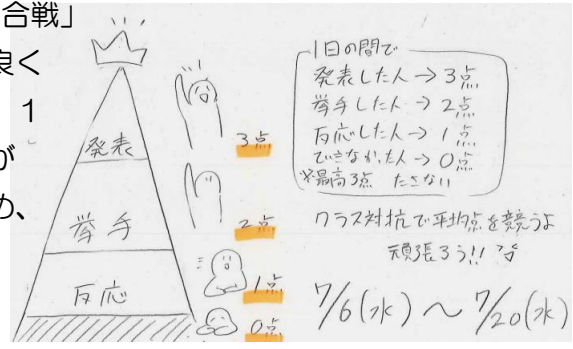 合戦」
良く
1
が
め、
発表
挙手
反応
3点
2点
1点
0点
1日の間で
発表した人→3点
挙手した人→2点
反応した人→1点
できなかった人→0点
※最高3点 たさない
クラス対抗で平均点を競うよ
頑張ろう!!
7/6(水)～7/20(水)